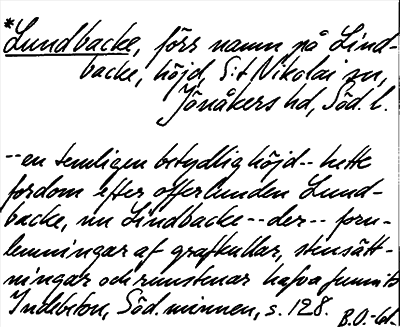 *Lundbacke, förr namn på Lind-
backe, höjd, S:t Nikolai sn,
Jönåkers hd, Söd. l.
--en temligen betydlig höjd-- hette
fordom efter offerlunden Lund-
backe, nu Lindbacke--der-- forn-
lemningar af grafkullar, stensätt-
ningar och runstenar hafva funnits
Indebetou, Söd. minnen, s. 128.
B.O.-61.